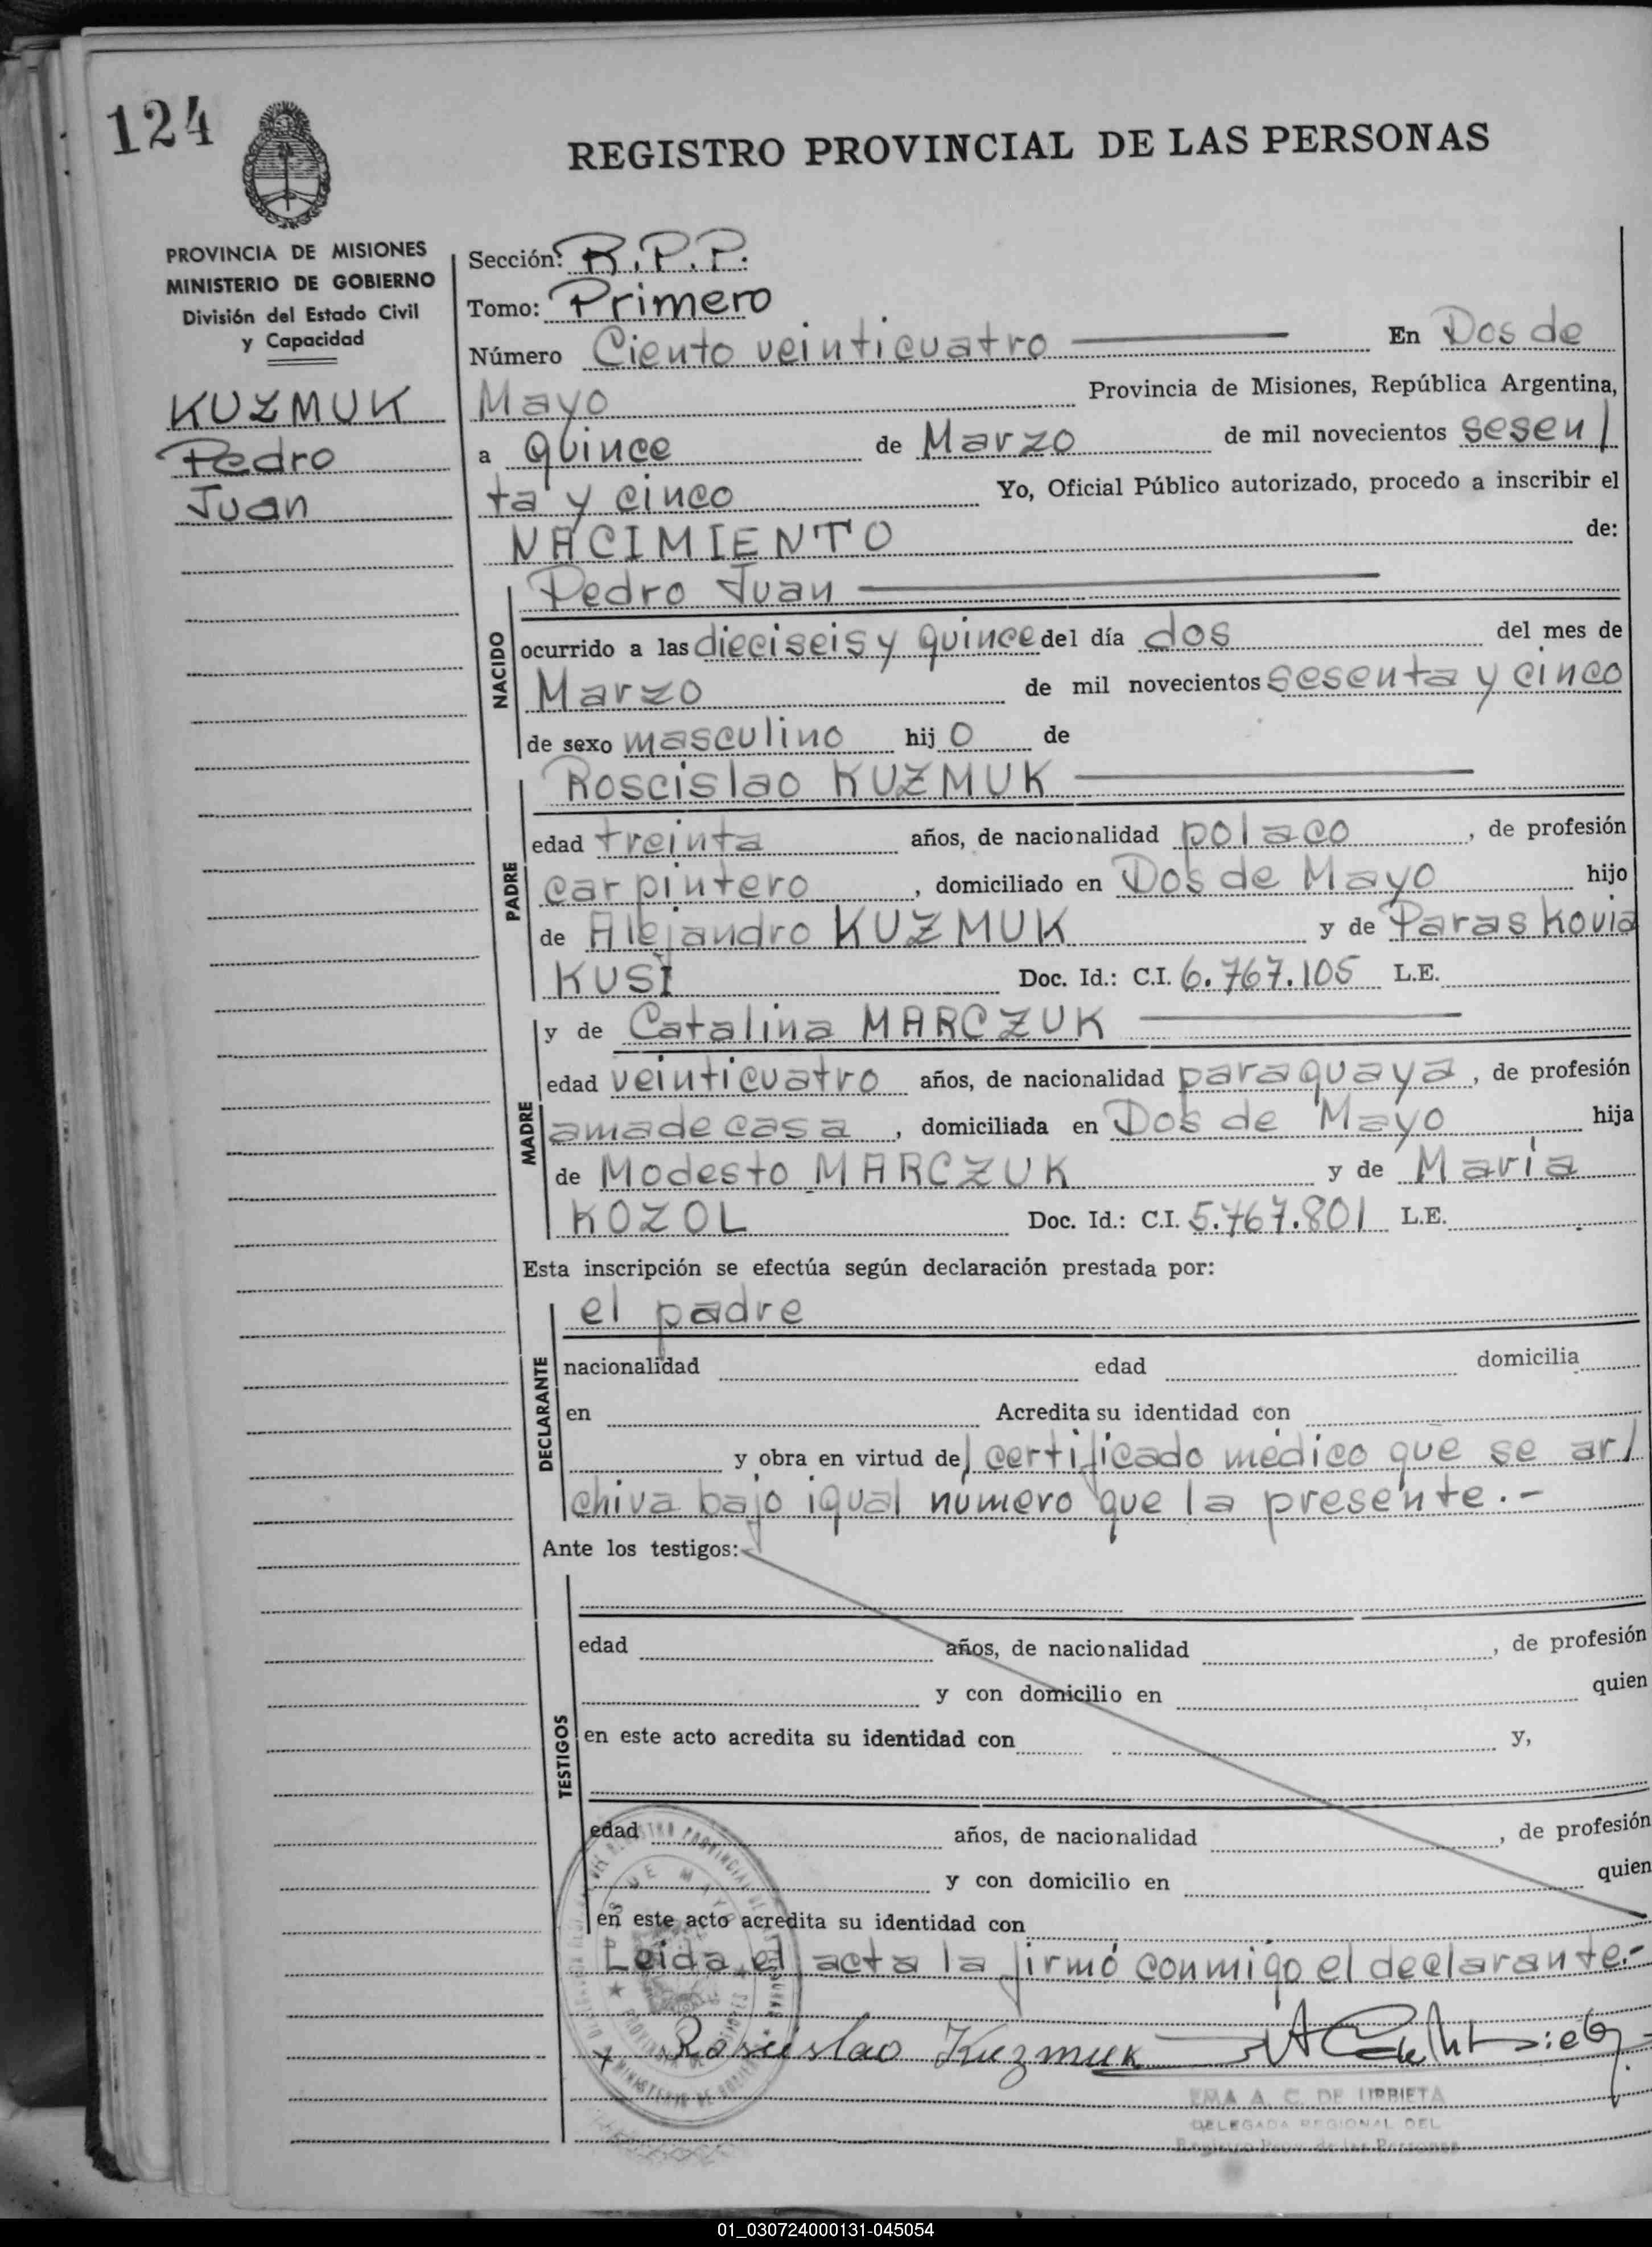 124
REGISTRO PROVINCIAL DE LAS PERSONAS
PROVINCIA DE MISIONES
MINISTERIO DE GOBIERNO
División del Estado Civil
y Capacidad
KUZMUK
Pedro
Juan
Sección: R.P.P.
Tomo: Primero
Número Ciento veinticuatro En Dos de
Mayo Provincia de Misiones, República Argentina,
a quince de Marzo de mil novecientos sesen/
ta y cinco Yo, Oficial Público autorizado, procedo a inscribir el
NACIMIENTO de:
NACIDO
Pedro Juan
ocurrido a las dieciseis y quince del día dos del mes de
Marzo de mil novecientos sesenta y cinco
de sexo masculino hij o de
PADRE
Roscislao KUZMUK
edad treinta años, de nacionalidad polaco, de profesión
carpintero, domiciliado en Dos de Mayo hijo
de Alejandro KUZMUK y de Paraskovia
KUSI Doc. Id.: C.I. 6.767.105 L.E.
MADRE
y de Catalina MARCZUK
edad veinticuatro años, de nacionalidad paraguaya, de profesión
ama de casa, domiciliada en Dos de Mayo hija
de Modesto MARCZUK y de María
KOZOL Doc. Id.: C.I. 5.767.801 L.E.
Esta inscripción se efectúa según declaración prestada por:
DECLARANTE
el padre
nacionalidad edad domicilia
en Acredita su identidad con
y obra en virtud del certificado médico que se ar/
chiva bajo igual numero que la presente.-
Ante los testigos:
TESTIGOS
edad años, de nacionalidad , de profesión
y con domicilio en quien
en este acto acredita su identidad con y,
edad años, de nacionalidad , de profesión
y con domicilio en quien
en este acto acredita su identidad con
Leida el acta la firmó conmigo el declarante.-
Roscislao Kuzmuk
EMA A. C. DE URBIETA
DELEGADA REGIONAL DEL
Registro Prov. de las Personas
01_030724000131-045054